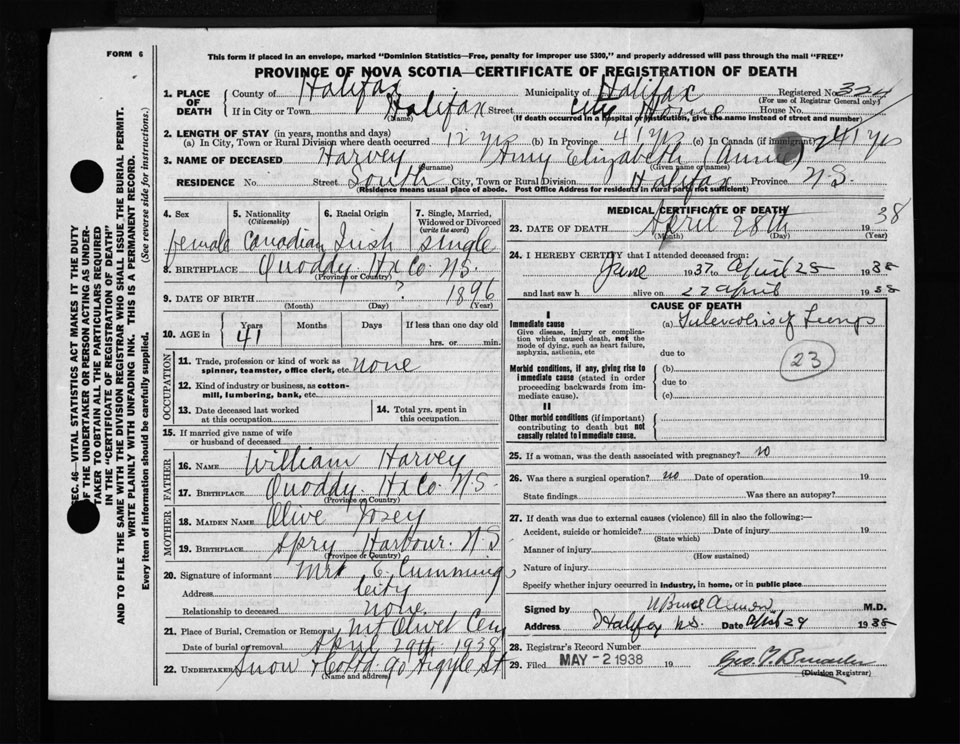 FORM 6
This form if placed in an envelope, marked "Dominion Statistics—Free, penalty for improper use $300," and properly addressed will pass through the mail "FREE"
PROVINCE OF NOVA SCOTIA—CERTIFICATE OF REGISTRATION OF DEATH
1. PLACE OF DEATH
County of Halifax Municipality of Halifax Registered No. 324
(For use of Registrar General only)
If in City or Town Halifax Street City Home House No.
(Name) (If death occurred in a hospital or institution, give the name instead of street and number)
2. LENGTH OF STAY (in years, months and days)
(a) In City, Town or Rural Division where death occurred 12 yrs (b) In Province 41 yrs (c) In Canada (if immigrant) 41 yrs
3. NAME OF DECEASED Harvey Amy Elizabeth (Annie)
(Surname) (Given name or names)
RESIDENCE No. Street South City, Town or Rural Division Halifax Province N.S.
(Residence means usual place of abode. Post Office Address for residents in rural parts not sufficient)
4. Sex
5. Nationality (Citizenship)
6. Racial Origin
7. Single, Married, Widowed or Divorced (write the word)
female Canadian Irish single
8. BIRTHPLACE Quoddy Hx Co. N.S.
(Province or Country)
9. DATE OF BIRTH ? 1896
(Month) (Day) (Year)
10. AGE in
Years Months Days If less than one day old
41 hrs. or min.
OCCUPATION
11. Trade, profession or kind of work as spinner, teamster, office clerk, etc. none
12. Kind of industry or business, as cotton-mill, lumbering, bank, etc.
13. Date deceased last worked at this occupation
14. Total yrs. spent in this occupation
15. If married give name of wife or husband of deceased
FATHER
16. NAME William Harvey
17. BIRTHPLACE Quoddy Hx Co. N.S.
(Province or Country)
MOTHER
18. MAIDEN NAME Olive Josey
19. BIRTHPLACE Spry Harbour. N.S
(Province or Country)
20. Signature of informant Mrs E. Cumming
Address City
Relationship to deceased none.
21. Place of Burial, Cremation or Removal Mt Olivet Cem
Date of burial or removal April 29th 1938
22. UNDERTAKER Snow & Co Ltd 90 Argyle St
(Name and address)
MEDICAL CERTIFICATE OF DEATH
23. DATE OF DEATH April 28th 19 38
(Month) (Day) (Year)
24. I HEREBY CERTIFY that I attended deceased from:
June 1937 to April 28 1938
and last saw h alive on 27 April 1938
CAUSE OF DEATH
I
Immediate cause
Give disease, injury or complication which caused death, not the mode of dying, such as heart failure, asphyxia, asthenia, etc
(a) Tuberculosis of Lungs
due to
23
Morbid conditions, if any, giving rise to immediate cause (stated in order proceeding backwards from immediate cause).
(b)
due to
(c)
II
Other morbid conditions (if important) contributing to death but not causally related to immediate cause.
25. If a woman, was the death associated with pregnancy? no
26. Was there a surgical operation? no Date of operation 19
State findings Was there an autopsy?
27. If death was due to external causes (violence) fill in also the following:—
Accident, suicide or homicide? Date of injury 19
(State which)
Manner of injury
(How sustained)
Nature of injury
Specify whether injury occurred in industry, in home, or in public place
Signed by M.D.
Address Halifax N.S. Date April 29 1938
28. Registrar's Record Number
29. Filed MAY -2 1938 19
(Division Registrar)
SEC. 46—VITAL STATISTICS ACT MAKES IT THE DUTY
OF THE UNDERTAKER OR PERSON ACTING AS UNDER-
TAKER TO OBTAIN ALL THE PARTICULARS REQUIRED
IN THE "CERTIFICATE OF REGISTRATION OF DEATH"
AND TO FILE THE SAME WITH THE DIVISION REGISTRAR WHO SHALL ISSUE THE BURIAL PERMIT.
WRITE PLAINLY WITH UNFADING INK. THIS IS A PERMANENT RECORD.
Every item of information should be carefully supplied. (See reverse side for instructions.)